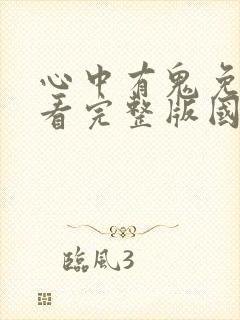 心中有鬼免
看完整版國
臨風3